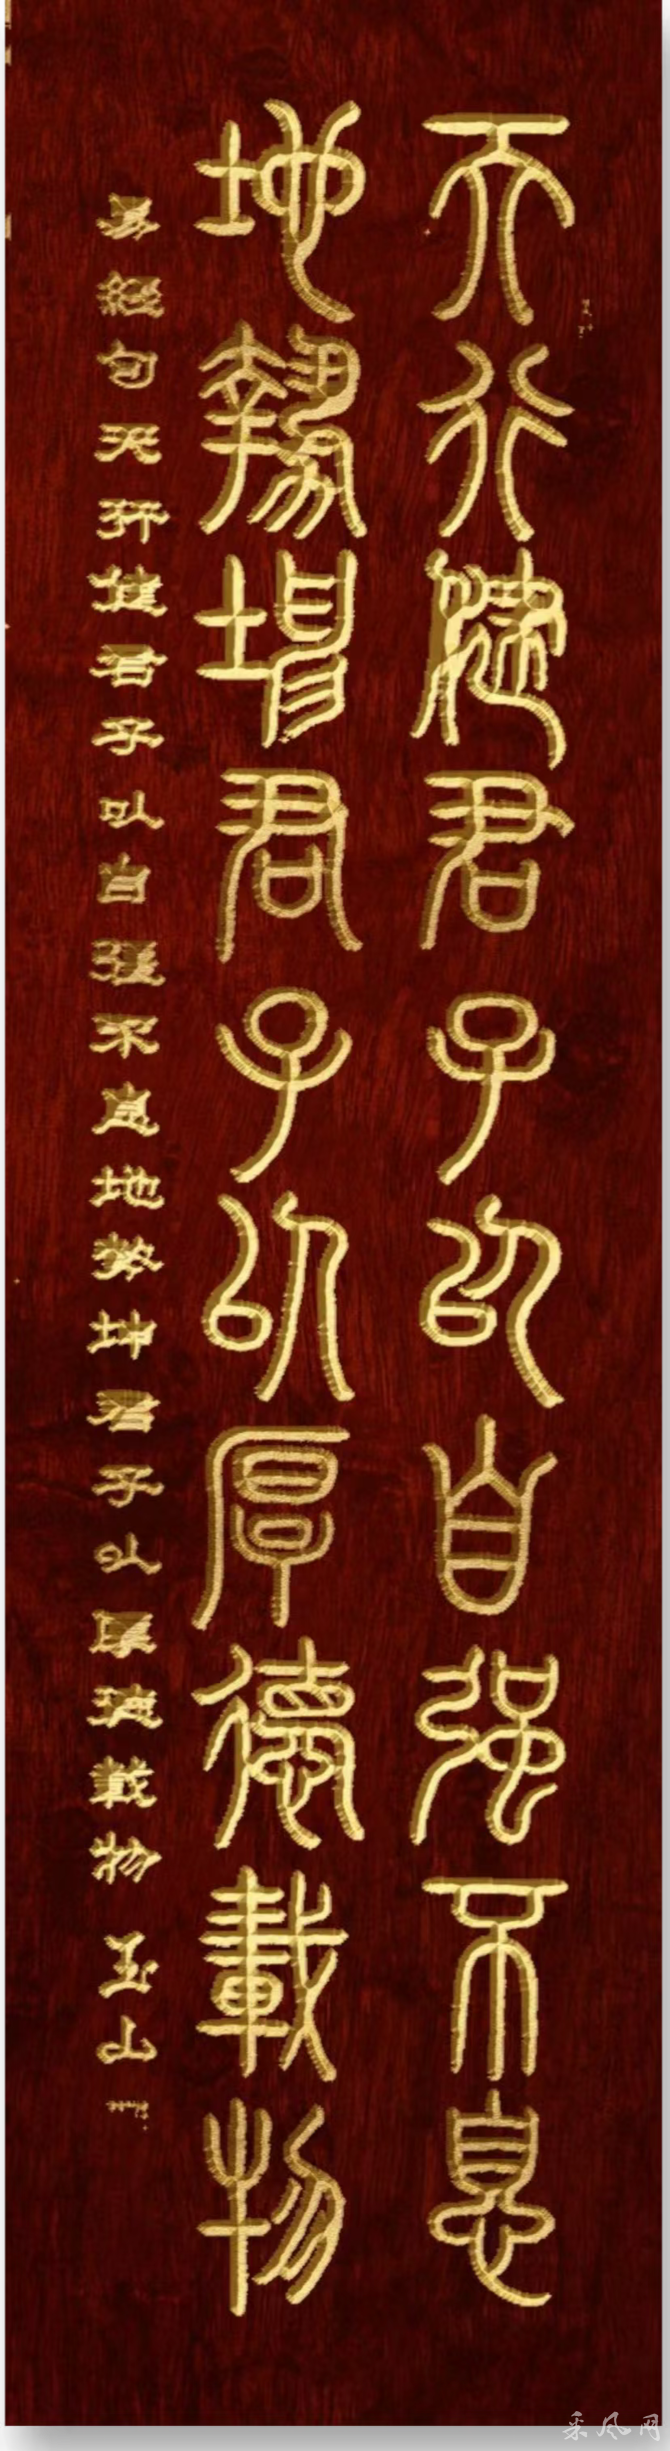 天行健君子以自强不息
地勢坤君子以厚德載物
易經句天行健君子以自强不息地勢坤君子以厚德載物 玉山
采风网